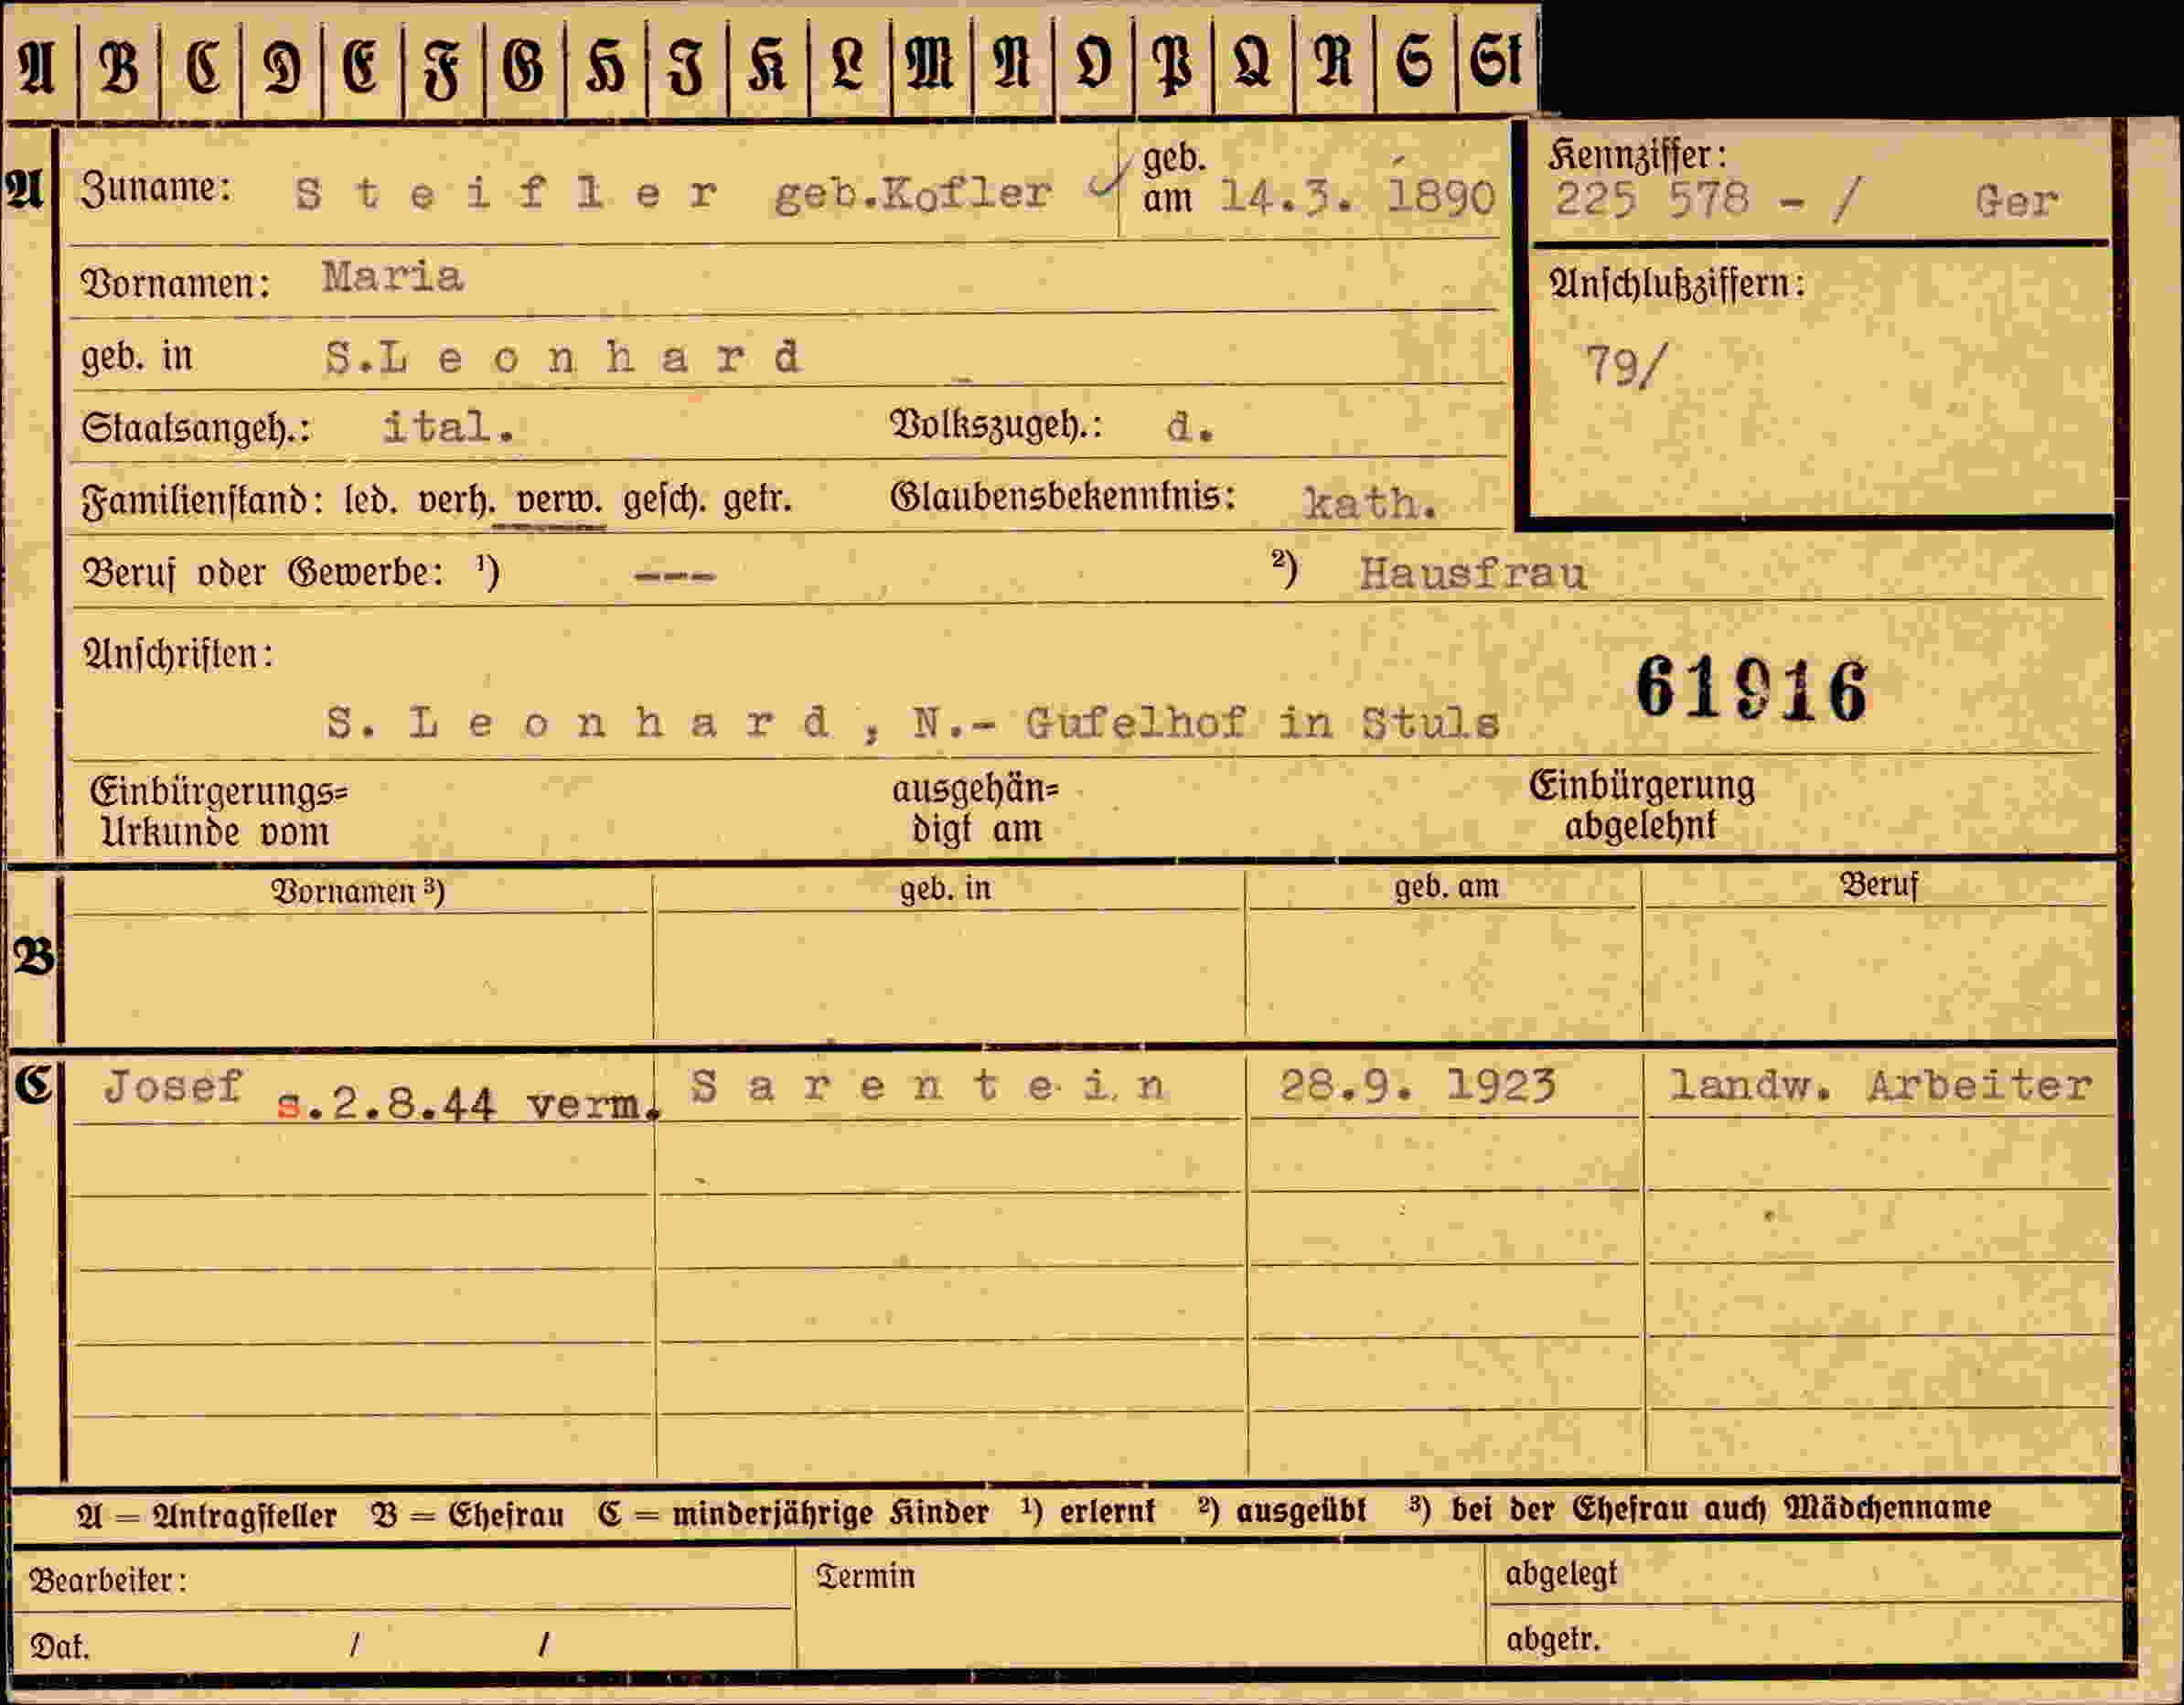 A B C D E F G H I K L M N O P Q R S St
A Zuname: Steifler geb.Kofler geb. am 14.3. 1890
Kennziffer:
225 578 - / Ger
Vornamen: Maria
Anschlußziffern:
79/
geb. in S.Leonhard
Staatsangeh.: ital. Volkszugeh.: d.
Familienstand: led. verh. verw. gesch. getr. Glaubensbekenntnis: kath.
Beruf oder Gewerbe: ¹) --- ²) Hausfrau
Anschriften:
61916
S. Leonhard, N.- Gufelhof in Stuls
Einbürgerungs= ausgehän= Einbürgerung
Urkunde vom digt am abgelehnt
Vornamen ³) geb. in geb. am Beruf
B
C Josef s.2.8.44 verm. Sarentein 28.9. 1923 landw. Arbeiter
A = Antragsteller B = Ehefrau C = minderjährige Kinder ¹) erlernt ²) ausgeübt ³) bei der Ehefrau auch Mädchenname
Bearbeiter: Termin abgelegt
Dat. / / abgetr.